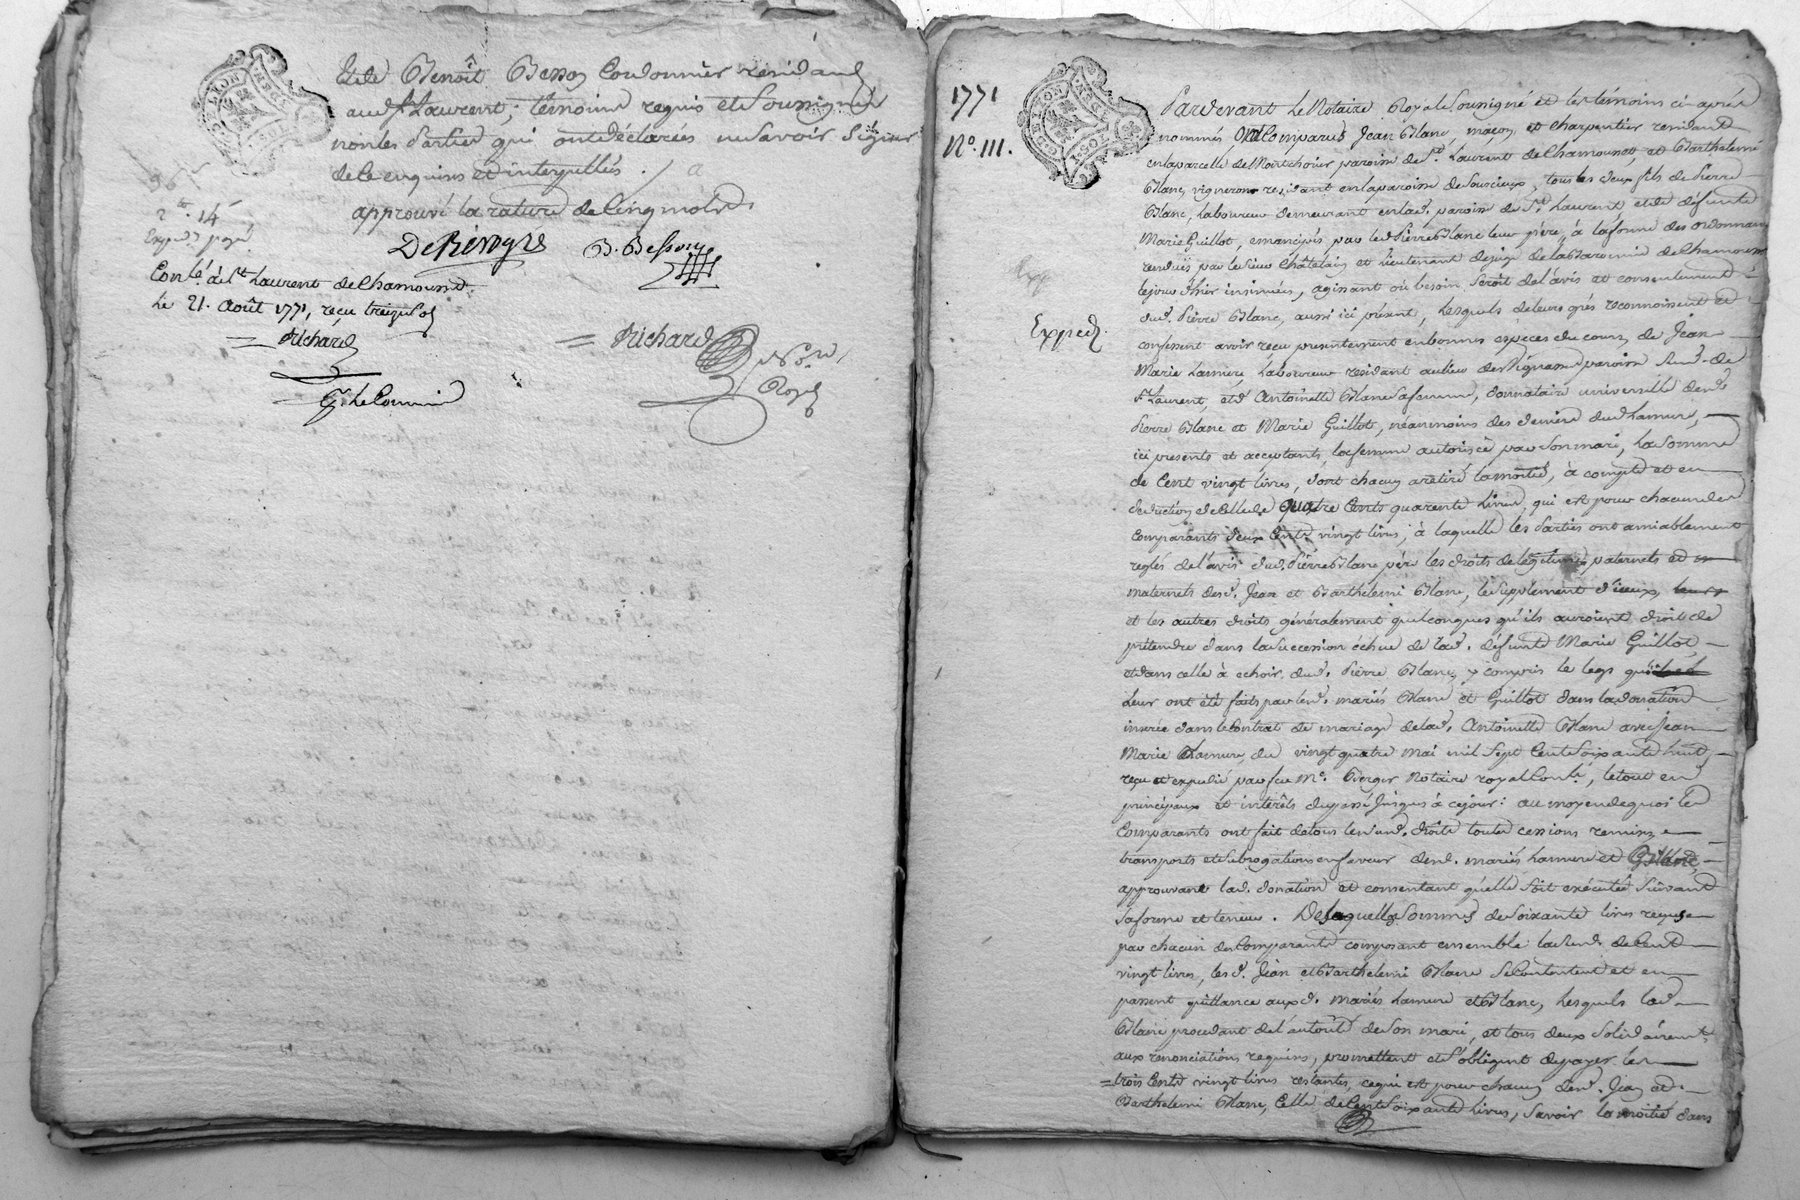 et de Benoit Besson Cordonnier residant
aud. St Laurent, témoins requis et soussignés
non les Parties qui ont déclarées ne savoir signer
de ce enquises et interpellées.
approuvé la rature de cinq mots
DeBérogre B. Besson
Conlé. à St Laurent de Chamousset
le 21. Août 1771, reçu treize sols
Richard
Richard
Nore.
Royal
1771
N°. 111.
Exped.
Pardevant Le Notaire Royal soussigné et les témoins ci-après
nommés ont Comparus Jean Blanc, maçon et charpentier residant
en la parcelle de Montchorier paroisse de St. Laurent de Chamousset, et Barthelemi
Blanc, vigneron residant en la paroisse de Sourcieux, tous les deux fils de Pierre
Blanc, Laboureur demeurant en lad. paroisse de St. Laurent et de défunte
Marie Guillot, emancipés par led. Pierre Blanc leur père, à la forme des ordonnances
rendues par le sieur Châtelain et Lieutenant de juge de la Baronnie de Chamousset
le jour d'hier insinuées, agissant où besoin seroit de l'avis et consentement
dud. Pierre Blanc, aussi ici présent, Lesquels de leurs grés reconnoissent et
confessent avoir reçu presentement en bonnes espèces du cours, de Jean
Marie Lamure, Laboureur residant au lieu de paroisse dud.
St Laurent, et d'Antoinette Blanc sa femme, donnataire universelle desd.
Pierre Blanc et Marie Guillot, néanmoins des deniers dud. Lamure,
ici presents et acceptants, la femme autorisée par son mari, La somme
de Cent vingt livres, dont chacun a retiré la moitié, à compte et en
déduction de celle de quatre Cents quarente Livres, qui est pour chacun des
comparants deux Cents vingt livres, à laquelle les Parties ont amiablement
reglés de l'avis dud. Pierre Blanc père les droits de légitime paternels et
maternels desd. Jean et Barthelemi Blanc, le supplément d'iceux,
et les autres droits généralement quelconques qu'ils auroient droit de
prétendre dans la succession échue de lad. défunte Marie Guillot,
et dans celle à echoir dud. Pierre Blanc, y compris le legs qui
Leur ont été faits par lesd. mariés Blanc et Guillot dans la donation
inserée dans le Contrat de mariage de lad. Antoinette Blanc avec Jean
Marie Lamure, du vingt quatre mai mil sept Cent soixante huit,
reçu et expedié par feu Me. Berger Notaire royal, le tout en
principaux et intérêts du passé jusques à ce jour: au moyen de quoi les
Comparants ont fait de tous lesd. droits toutes cessions remises
transports et subrogations en faveur desd. mariés Lamure et Blanc,
approuvant lad. donation et consentant qu'elle soit exécutée suivant
sa forme et teneur. De laquelle somme de soixante livres reçues
par chacun des Comparants composant ensemble lad. de Cent
vingt livres, lesd. Jean et Barthelemi Blanc se Contentent et en
passent quittance auxd. mariés Lamure et Blanc, Lesquels lad.
Blanc procedant de l'autorité de son mari, et tous deux solidairement
aux renonciations requises, promettent et s'obligent de payer les
trois Cents vingt livres restantes, ce qui est pour chacun desd. Jean et
Barthelemi Blanc, Celle de Cent soixante Livres, savoir la moitié dans